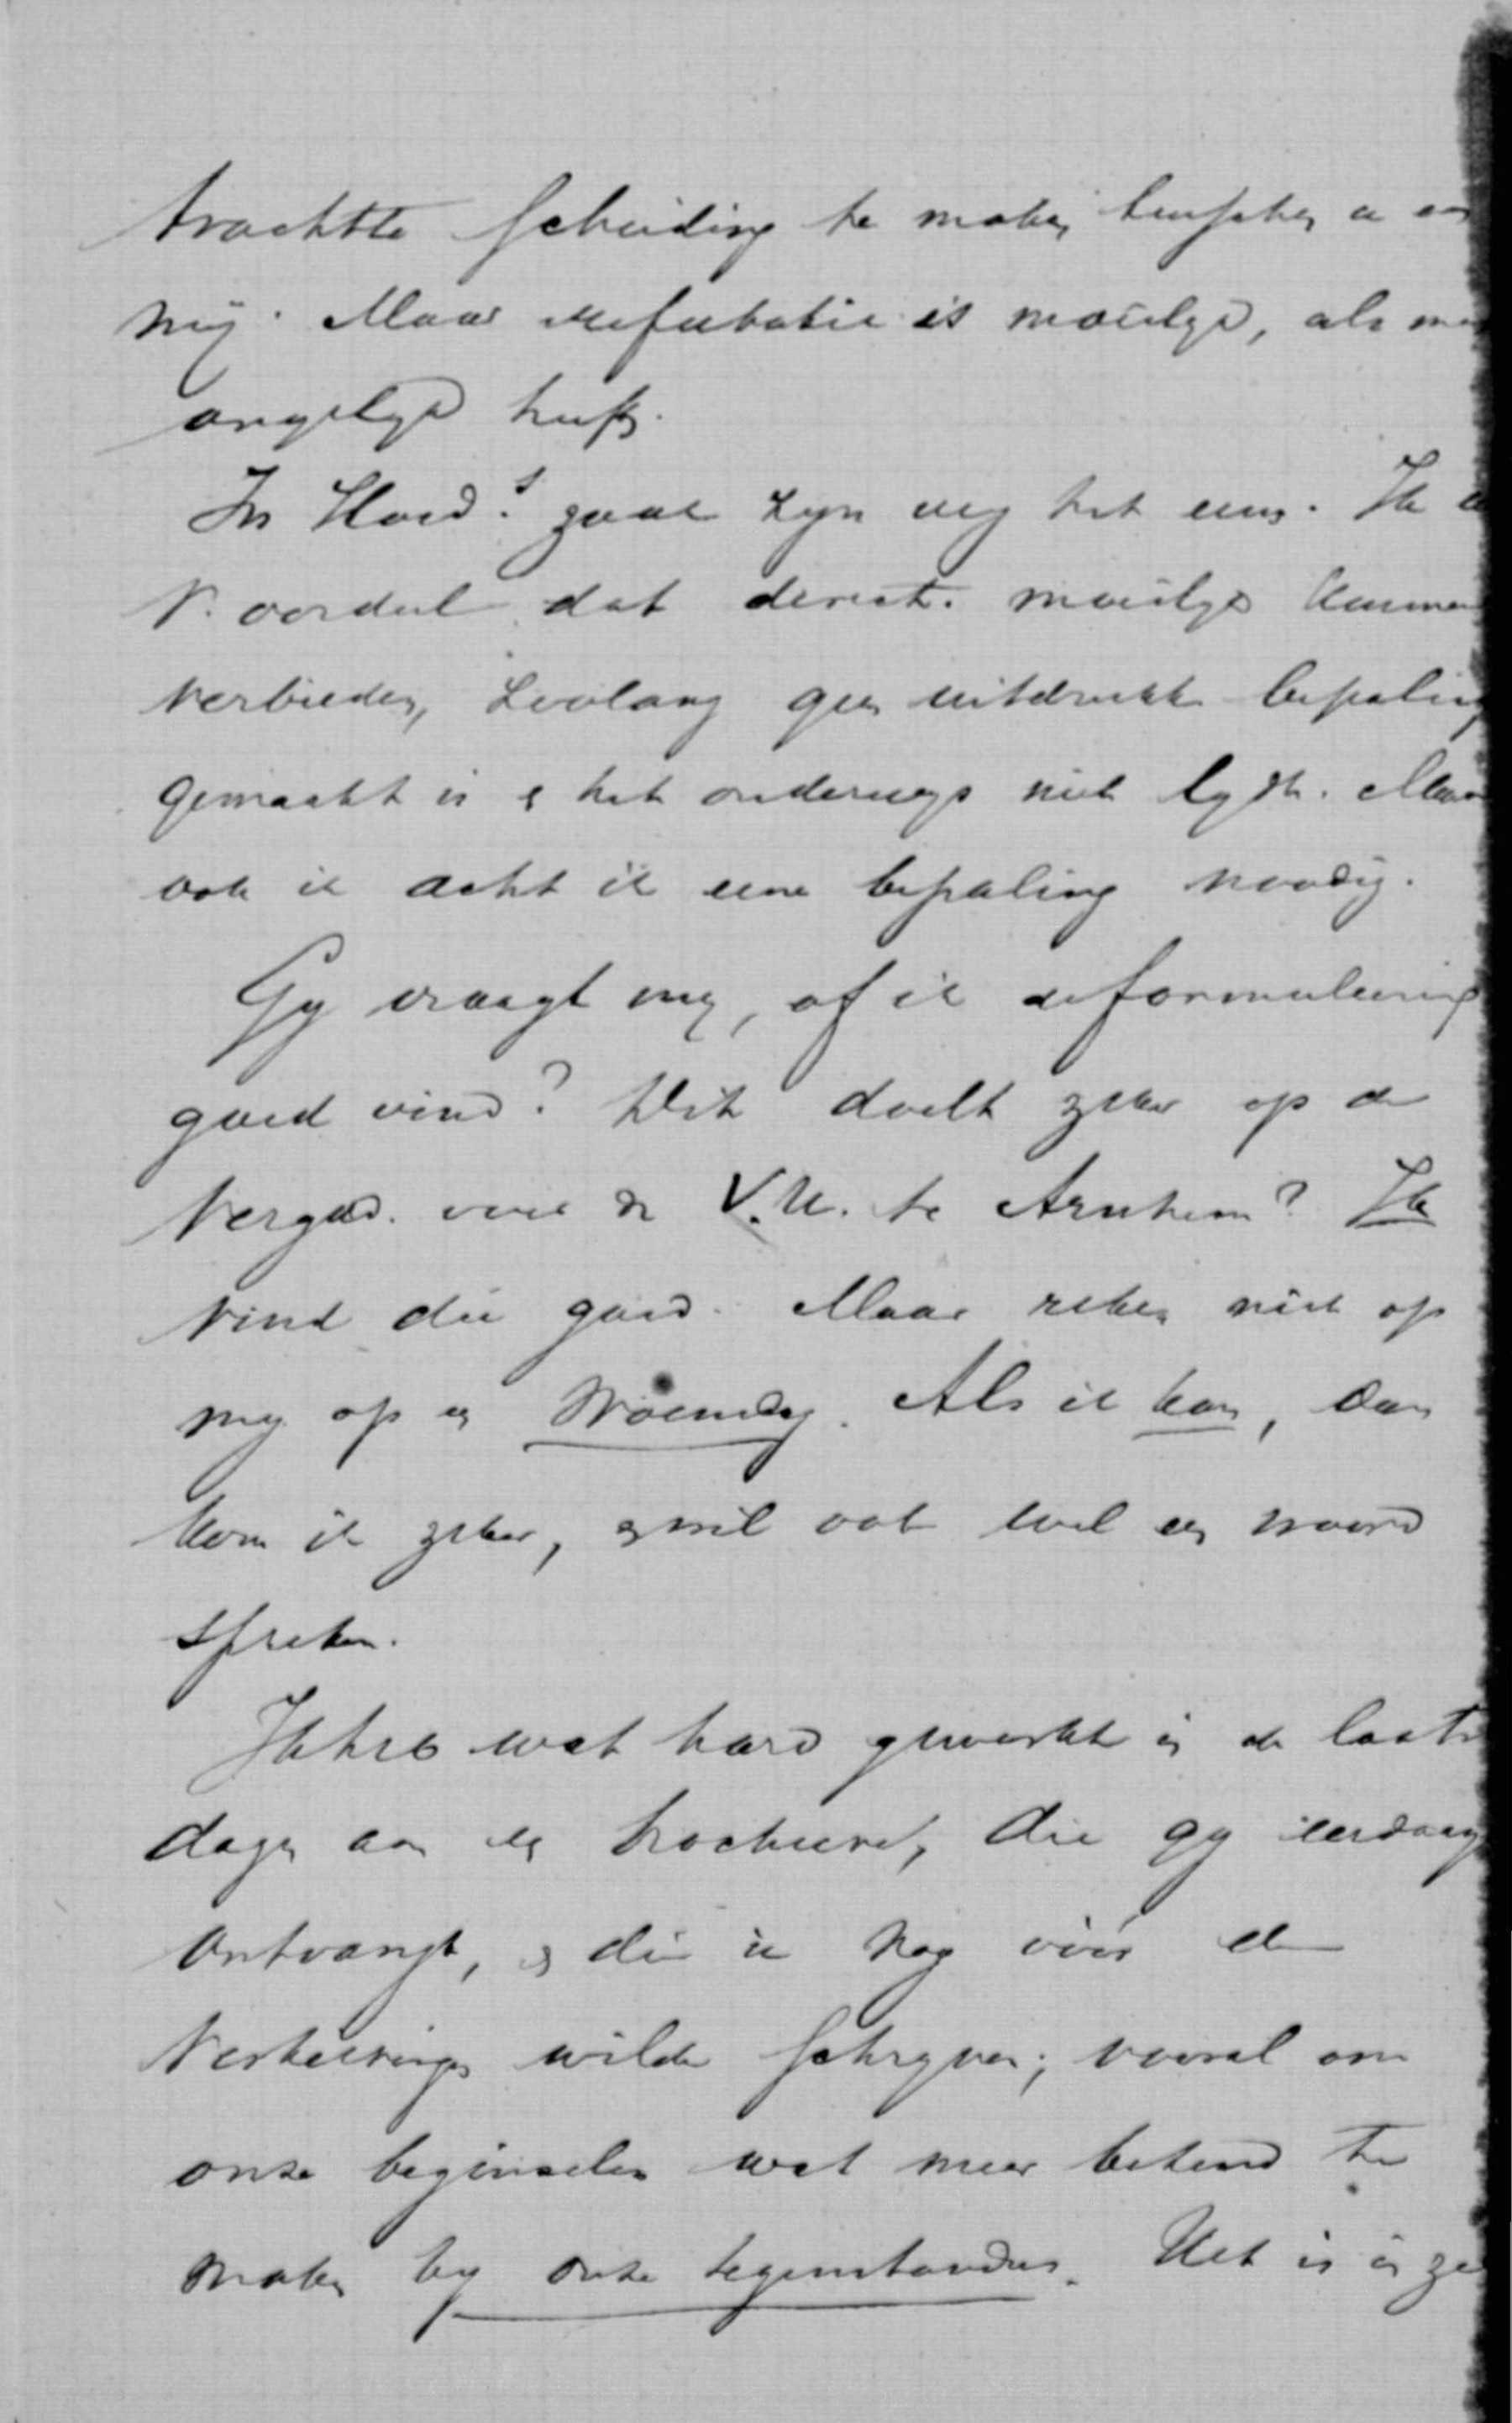 trachtte scheiding te maken tusschen u en
mij. Maar refutatie is moeilijk, als men
ongelijk heeft.
In Hoed.s zaak zijn wij het eens. Ik
v. oordeel dat direct. moeilijk kunnen
verbieden, zoolang geen uitdrukk. bepaling
gemaakt is & het onderwijs niet lijdt. Maar
ook ik acht ik eene bepaling noodig.
Gij vraagt mij, of ik de formuleering
goed vind? Dit doelt zeker op de
Vergad. voor de V.U. te Arnhem? Ik
vind die goed. Maar reken niet op
mij op een Woensdag. Als ik kan, dan
kom ik zeker, & wil ook wel een woord
spreken.
Ik heb wat hard gewerkt in de laatste
dagen aan een brochure, die gij eerdaags
ontvangt, en die ik nog vóór de
Verkiezingen wilde schrijven; vooral om
onze beginselen wat meer bekend te
maken bij onze tegenstanders. Het is in